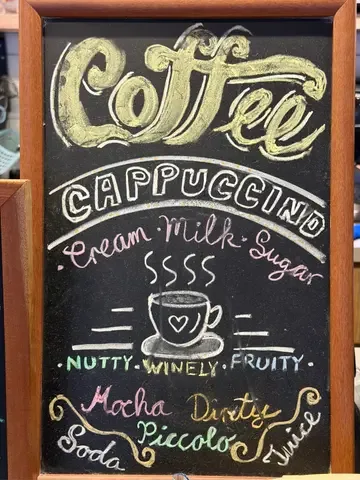 Coffee
CAPPUCCINO
· Cream · Milk · Sugar
· NUTTY · WINELY · FRUITY ·
Mocha Dirty
Piccolo
Soda Juice